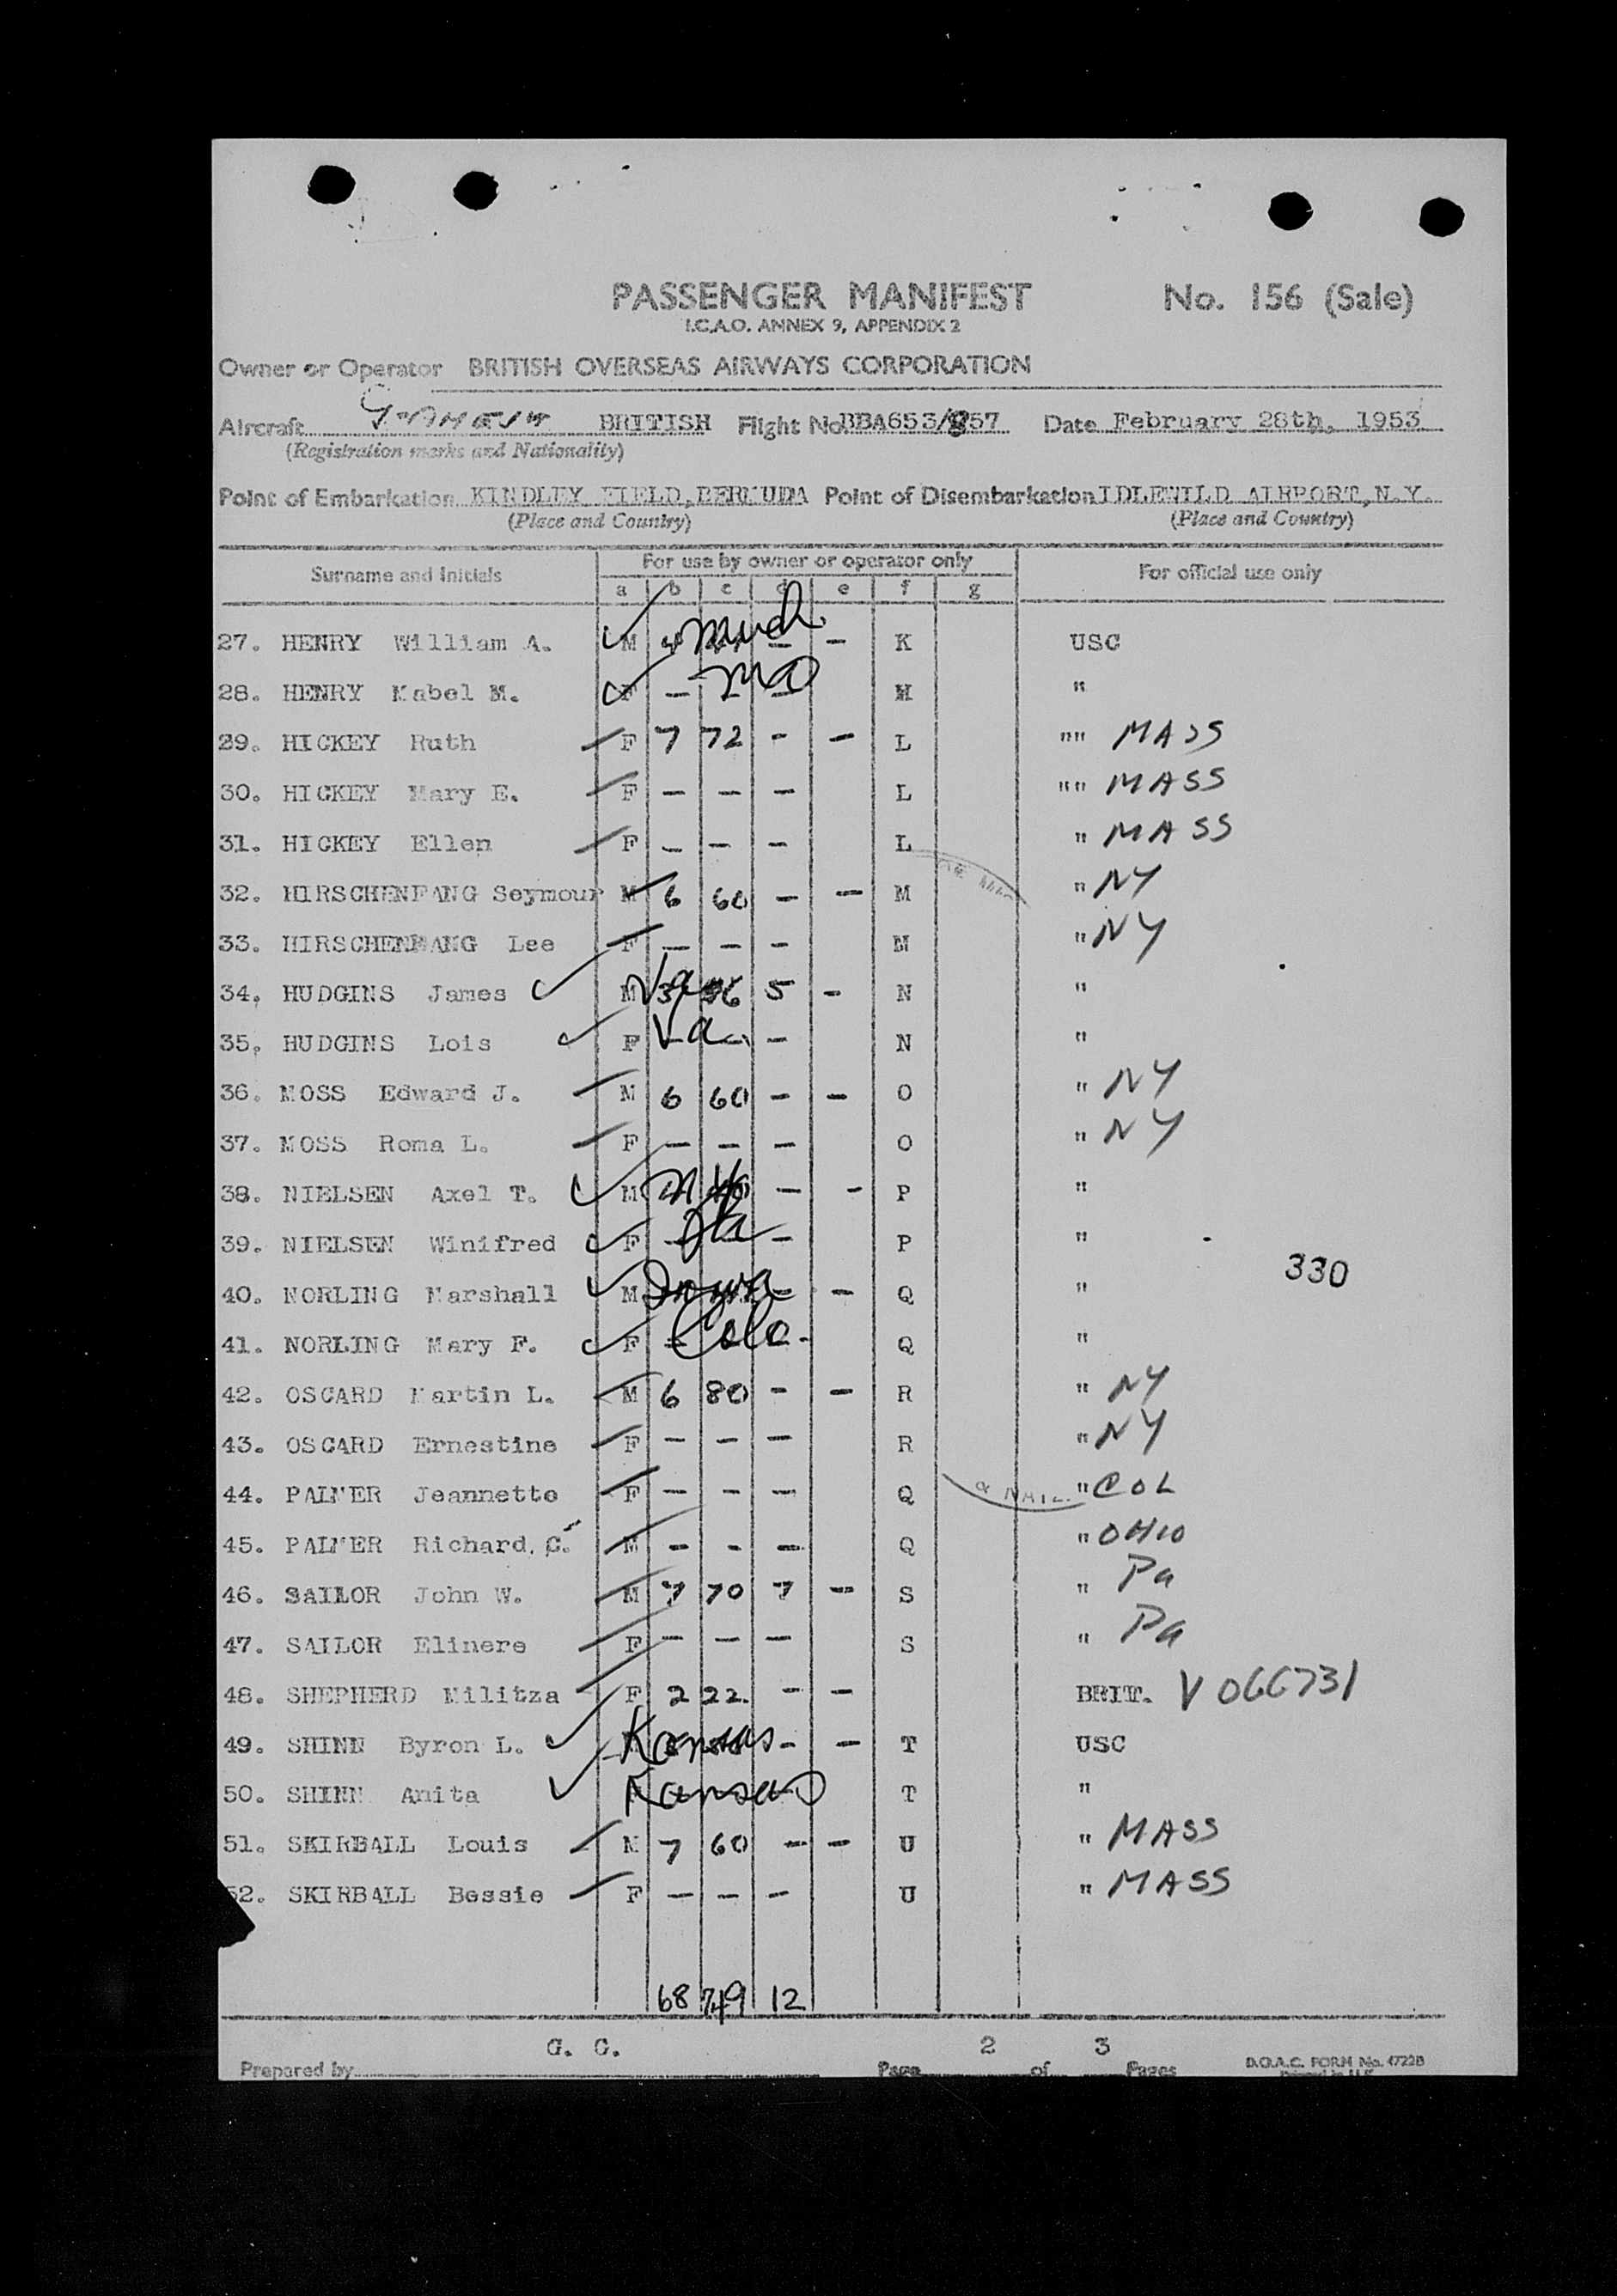 PASSENGER MANIFEST No. 156 (Sale)
I.C.A.O. ANNEX 9, APPENDIX 2
Owner or Operator BRITISH OVERSEAS AIRWAYS CORPORATION
Aircraft BRITISH Flight No BBA653/857 Date February 28th, 1953
(Registration marks and Nationality)
Point of Embarkation KINDLEY FIELD, BERMUDA Point of Disembarkation IDLEWILD AIRPORT, N.Y.
(Place and Country) (Place and Country)
Surname and Initials For use by owner or operator only For official use only
a b c d e f g
27. HENRY William A. M Mich - - K USC
28. HENRY Mabel M. F - - - MO M "
29. HICKEY Ruth F 7 72 - - L "" MASS
30. HICKEY Mary E. F - - - L "" MASS
31. HICKEY Ellen F - - - L " MASS
32. HIRSCHENFANG Seymour M 6 60 - - M " NY
33. HIRSCHENFANG Lee F - - - M " NY
34. HUDGINS James M Va 36 5 - N "
35. HUDGINS Lois F Va - - N "
36. MOSS Edward J. M 6 60 - - O " NY
37. MOSS Roma L. F - - - O " NY
38. NIELSEN Axel T. M - - P "
39. NIELSEN Winifred F - P "
40. NORLING Marshall M Iowa - - Q "
41. NORLING Mary F. F - Colo - Q "
42. OSCARD Martin L. M 6 80 - - R " NY
43. OSCARD Ernestine F - - - R " NY
44. PALMER Jeannette F - - - Q " COL
45. PALMER Richard. C. M - - - Q " OHIO
46. SAILOR John W. M 7 70 7 - S " Pa
47. SAILOR Elinere F - - - S " Pa
48. SHEPHERD Militza F 2 22. - - BRIT. V 066731
49. SHINN Byron L. Kansas - - T USC
50. SHINN Anita Kansas T "
51. SKIRBALL Louis M 7 60 - - U " MASS
52. SKIRBALL Bessie F - - - U " MASS
330
& NAT
68 749 12
G. C. 2 3
Prepared by Page of Pages B.O.A.C. FORM No. 4722B
Printed in U.K.